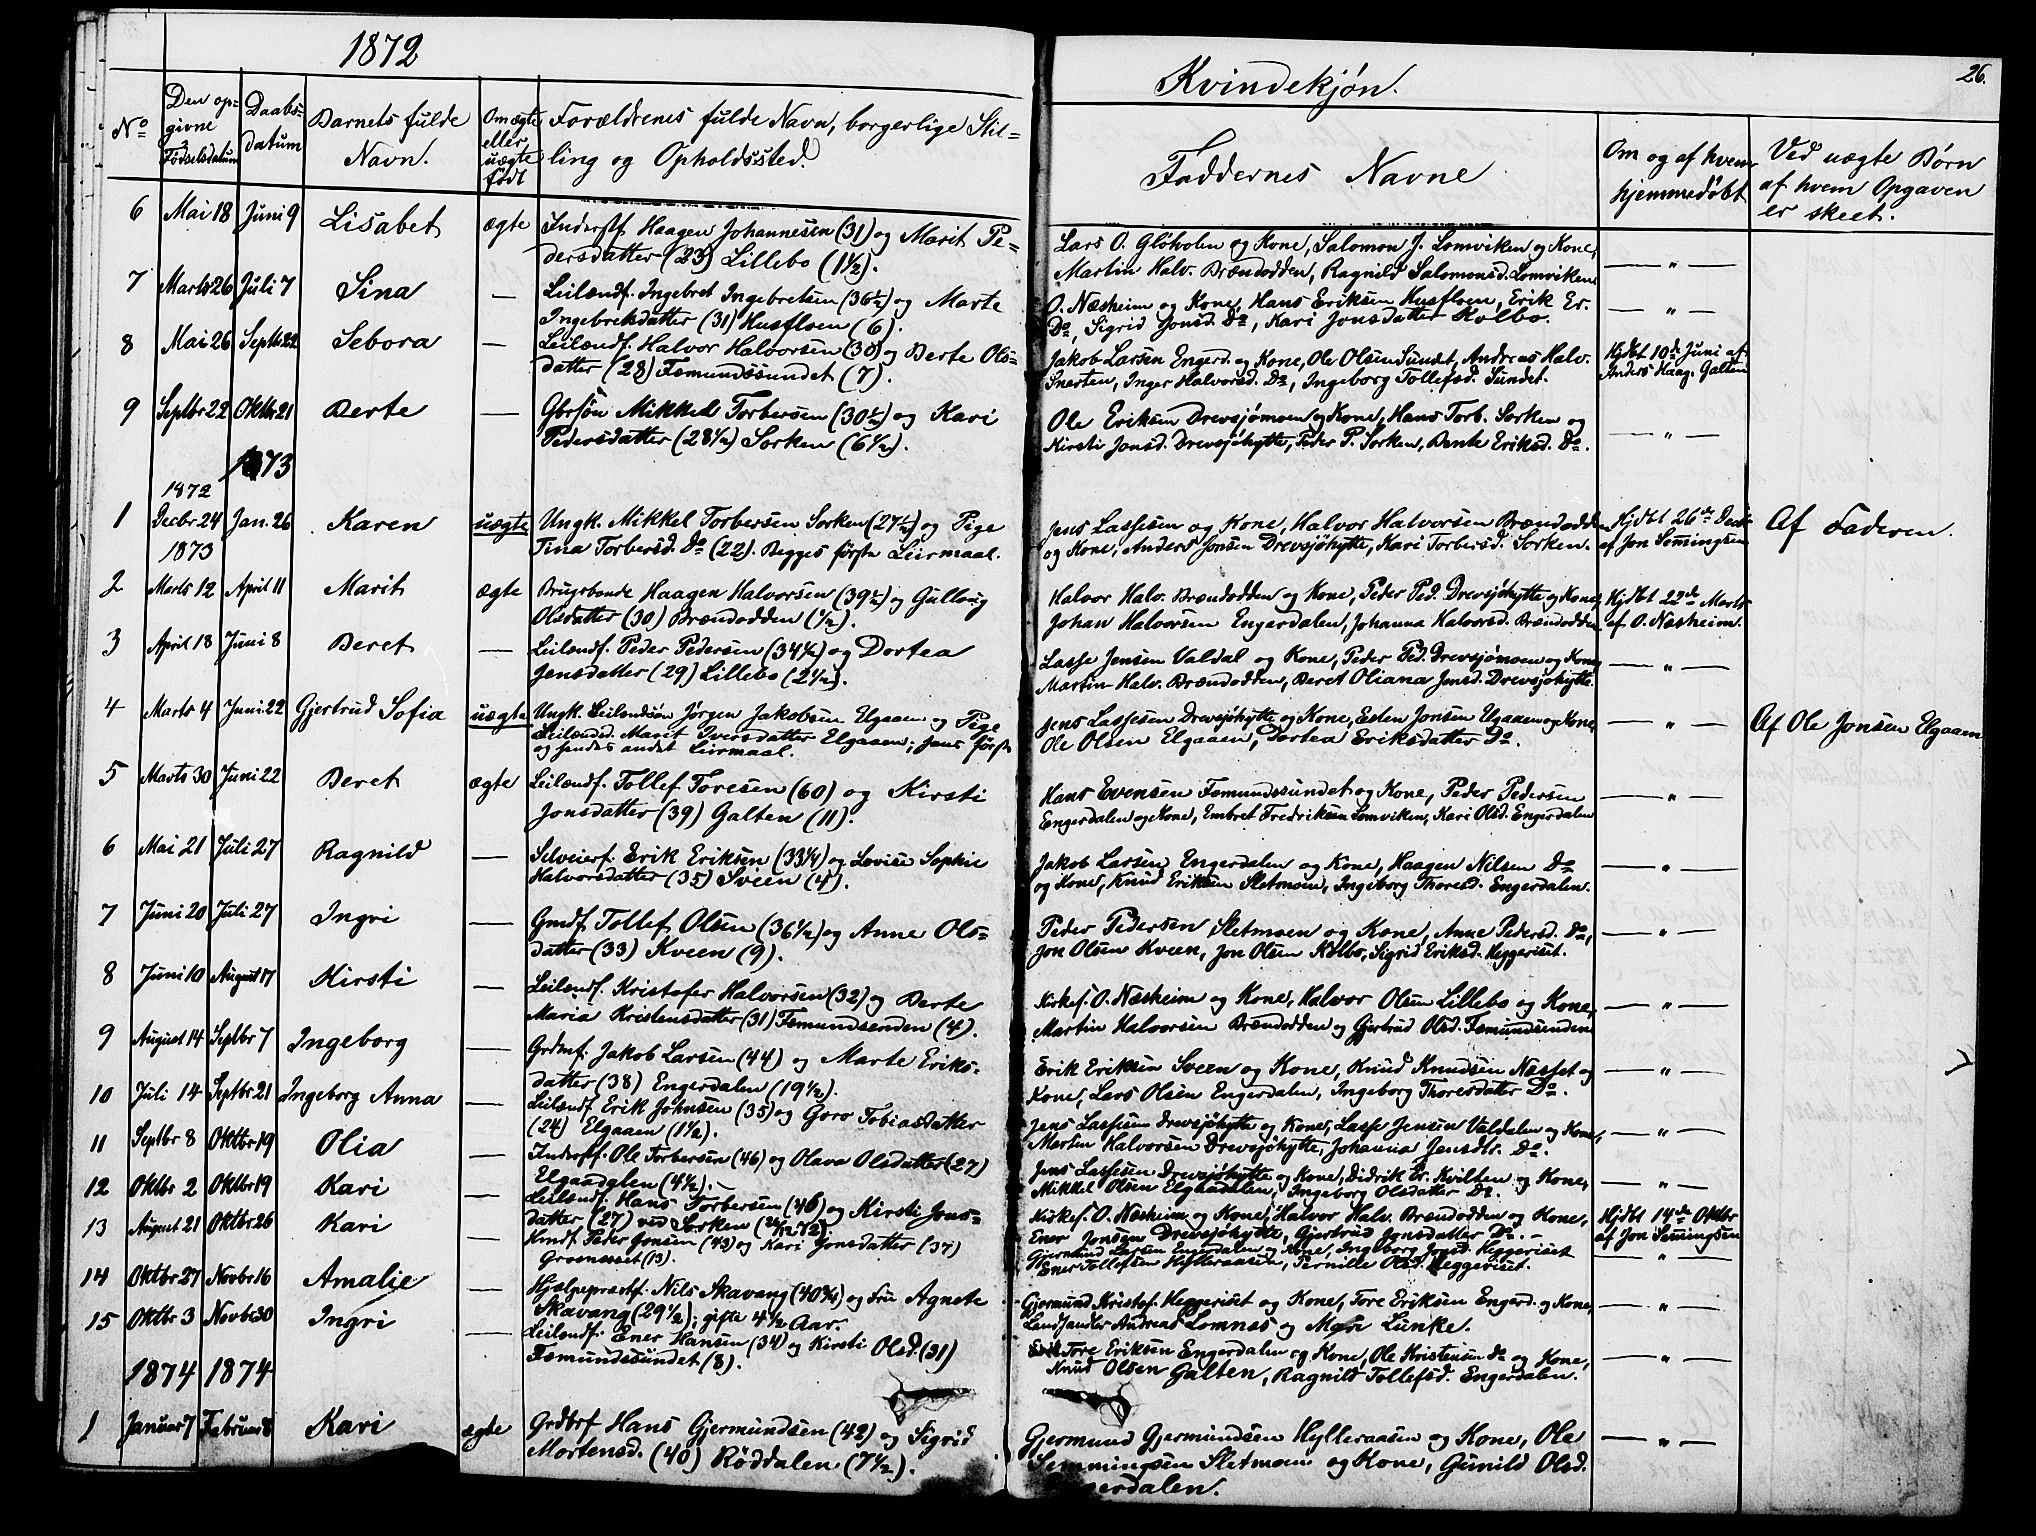 1872
Kvindekjøn.
26.
No
Den op-
givne
Fødselsdatum
Daabs-
datum
Barnets fulde
Navn.
Om ægte
eller
uægte
født
Forældrenes fulde Navn, borgerlige Stil-
ling og Opholdssted.
Faddernes Navne
Om og af hvem
hjemmedøbt
Ved uægte Børn
af hvem Opgaven
er skeet.
6 Mai 18 Juni 9 Lisabet ægte Inderstf. Haagen Johannesen (31) og Marit Pe-
dersdatter (23) Lillebo (1½).
Lars O. Glötvolen og Kone, Salomon J. Lomviken og Kone,
Martin Halv. Brændodden, Ragnild Salomonsd. Lomviken — " —
7 Marts 26 Juli 7 Sina — Leilændf. Ingebret Ingebretsen (36½) og Marte
Ingebretsdatter (31) Husfloen (6).
O. Næsheim og Kone, Hans Eriksen Husfloen, Erik Er.
Do, Sigrid Jonsd. Do, Kari Jonsdatter Kolbo. — " —
8 Mai 26 Septb 22 Sebora — Leilændf. Halvor Halvorsen (30) og Berte Ols-
datter (28) Fæmundssundet (7).
Jakob Larsen Engerd. og Kone, Ole Olsen Sundet, Andreas Halv.
Snerten, Inger Halvorsd. Do, Ingeborg Tollefsd. Sundet.
Hjdbt 10de Juni af
Anders Haag. Galten
9 Septbr 22 Oktbr 21 Berte — Gbrsøn Mikkel Torbersen (30½) og Kari
Pedersdatter (28½) Sorken (6½).
Ole Eriksen Drevsjømoen og Kone, Hans Torb. Sorken og
Kirsti Jonsd. Drevsjöhytte, Peder P. Sorken, Bente Eriksd. Do. — " —
1873
1872
1 Decbr 24 Jan. 26 Karen uægte Ungk. Mikkel Torbersen Sorken (27½) og Pige
Tina Torbersd. Do (22). Begges förste Leirmaal.
Jens Lassesen og Kone, Halvor Halvorsen Brændodden
og Kone, Anders Jonsen Drevsjöhytte, Kari Torbersd. Sorken.
Hjdbt 26de Decb
af Jon Semingsen
Af Faderen.
1873
2 Marts 12 April 11 Marit ægte Brugsbonde Haagen Halvorsen (39½) og Gullaug
Olsdatter (30) Brændodden (½).
Halvor Halv. Brændodden og Kone, Peder Ped. Drevsjöhytte og Kone,
Johan Halvorsen Engerdalen, Johanna Halvorsd. Brændodden
Hjdbt 22de Marts
af O. Næsheim.
3 April 18 Juni 8 Beret — Leilændf. Peder Pedersen (34½) og Dortea
Jensdatter (29) Lillebo (2½).
Lasse Jensen Valdal og Kone, Peder Ped. Drevsjömoen og Kone
Martin Halv. Brændodden, Beret Oliana Jensd. Drevsjöhytte. — " —
4 Marts 4 Juni 22 Gjertrud Sofia uægte Ungk. Leilændsön Jørgen Jakobsen Elgaaen og Pige
Leilændsd. Marit Iversdatter Elgaaen; hans förste
og hendes andet Leirmaal.
Jens Lassesen Drevsjöhytte og Kone, Esten Jonsen Elgaaen og Kone,
Ole Olsen Elgaaen, Dortea Eriksdatter Do. — " —
Af Ole Jonsen Elgaaen
5 Marts 30 Juni 22 Beret ægte Leilændf. Tollef Toresen (60) og Kirsti
Jonsdatter (39) Galten (11).
Hans Evensen Fæmundssundet og Kone, Peder Pedersen
Engerdalen og Kone, Embret Fredriksen Lomviken, Kari Olsd. Engerdalen — " —
6 Mai 21 Juli 27 Ragnild — Selveierf. Erik Eriksen (33¼) og Lovise Sophie
Halvorsdatter (35) Sveen (4).
Jakob Larsen Engerdalen og Kone, Haagen Nilsen Do
og Kone, Knud Eriksen Sletmoen, Ingeborg Thoresd. Engerdalen. — " —
7 Juni 20 Juli 27 Ingri — Grndf. Tollef Olsen (36½) og Anne Ols-
datter (33) Kveen (9).
Peder Pedersen Sletmoen og Kone, Anne Pedersd. Do,
Jon Olsen Kveen, Jon Olsen Kolbo, Sigrid Eriksd. Heggeriset. — " —
8 Juni 10 August 17 Kirsti — Leilændf. Kristofer Halvorsen (32) og Berte
Maria Kristensdatter (31) Fæmundsenden (4).
Kirkes. O. Næsheim og Kone, Halvor Olsen Lillebo og Kone,
Martin Halvorsen Brændodden og Gjertrud Olsd. Fæmundsenden — " —
9 August 14 Septbr 7 Ingeborg — Grdmf. Jakob Larsen (44) og Marte Eriks-
datter (38) Engerdalen (19½).
Erik Eriksen Sveen og Kone, Knud Knudsen Næsset og
Kone, Lars Olsen Engerdalen, Ingeborg Thoresdatter Do. — " —
10 Juli 14 Septbr 21 Ingeborg Anna — Leilændf. Erik Johnsen (35) og Goro Tobiasdatter
(24) Elgaaen (1½).
Jens Lassesen Drevsjöhytte og Kone, Lasse Jensen Valdalen og Kone,
Martin Halvorsen Drevsjöhytte, Johanna Jensdtr. Do. — " —
11 Septbr 8 Oktbr 19 Olia — Inderstf. Ole Torbersen (46) og Olava Olsdatter (27)
Elgaadglen (4½).
Jens Lassesen Drevsjöhytte og Kone, Didrik Er. Kvilten og Kone,
Mikkel Olsen Elgaadalen, Ingeborg Olsdatter Do. — " —
12 Oktbr 2 Oktbr 19 Kari — Leilændf. Hans Torbersen (46) og Kirsti Jons-
datter (27) ved Sorken
Kirkes. O. Næsheim og Kone, Halvor Halv. Brændodden og Kone,
Ener Jonsen Drevsjöhytte, Gjertrud Jonsdatter Do. —
Hjdbt 14de Oktbr
af Jon Semingsen
13 August 21 Oktbr 26 Kari — Hmdf. Peder Jonsen (43) og Kari Jonsdatter (37)
Grosnesset (13).
Gjermund Larsen Engerdalen og Kone, Ingeborg Jonsd. Heggeriset
Ener Tollefsen Hylleraasen, Pernille Olsd. Heggeriset. — " —
14 Oktbr 27 Novbr 16 Amalie — Hjælpepræstf. Nils Skavang (40¾) og Fru Agnete
Skavang (29½); gifte 4½ Aar.
Gjermund Kristof. Heggeriset og Kone, Tore Eriksen Engerd. og Kone,
Landhandler Andreas Lomnæs og Mari Lunke. — " —
15 Oktbr 3 Novbr 30 Ingri — Leilændf. Ener Hansen (34) og Kirsti Olsd. (31)
Fæmundssundet (8).
Tore Eriksen Engerdalen og Kone, Ole Kristensen Do og Kone,
Knud Olsen Galten, Ragnild Tollefsd. Engerdalen. — " —
1874 1874
1 Januar 7 Februar 8 Kari ægte Grdbrf Hans Gjermundsen (42) og Sigrid
Mortensd. (40) Röddalen (7½).
Gjermund Gjermundsen Hylleraasen og Kone, Ole
Semmingsen Sletmoen og Kone, Gunild Olsd.
erdalen. — " —